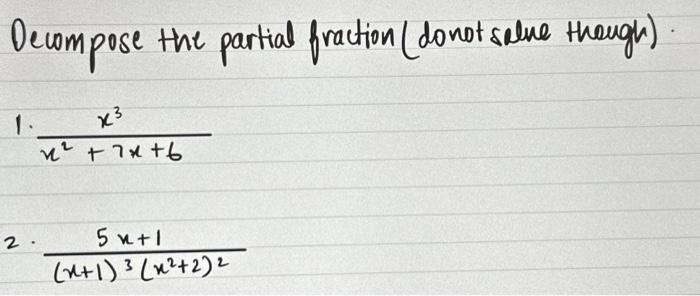 Decompose the partial fraction (do not solve though).
1. x³
x² + 7x + 6
2. 5x+1
(x+1)³(x²+2)²